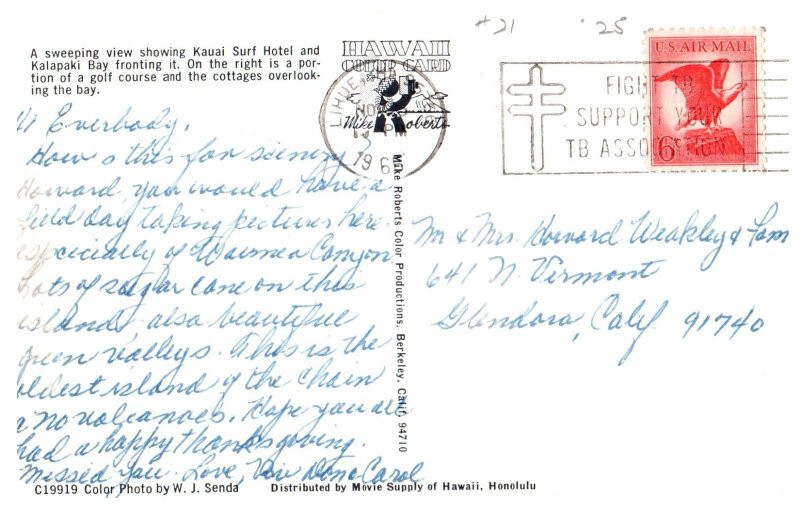 #21 25
A sweeping view showing Kauai Surf Hotel and
Kalapaki Bay fronting it. On the right is a por-
tion of a golf course and the cottages overlook-
ing the bay.
HAWAII
COLOR CARD
Mike Roberts
LIHUE
196
FIGHT TB
SUPPORT YOUR
TB ASSOCIATION
U.S. AIR MAIL
6¢
Hi Everbody,
How's this for scenery?
Howard, you would have a
field day taking pictures here.
especially of Waimea Canyon
Lots of sugar cane on this
island, also beautiful
green valleys. This is the
oldest island of the chain
no volcanoes. Hope you all
had a happy thanksgiving.
Missed you. Love, Carol
Mike Roberts Color Productions, Berkeley, Calif. 94710
Mr & Mrs. Howard Weakley & Fam
641 N. Vermont
Glendora, Calif. 91740
C19919 Color Photo by W. J. Senda
Distributed by Movie Supply of Hawaii, Honolulu